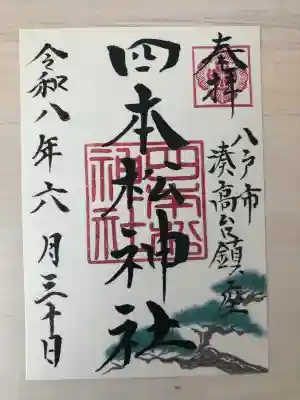 奉拝
八戸市
湊高台鎮座
四本松神社
四本松
神社
令和八年六月三十日